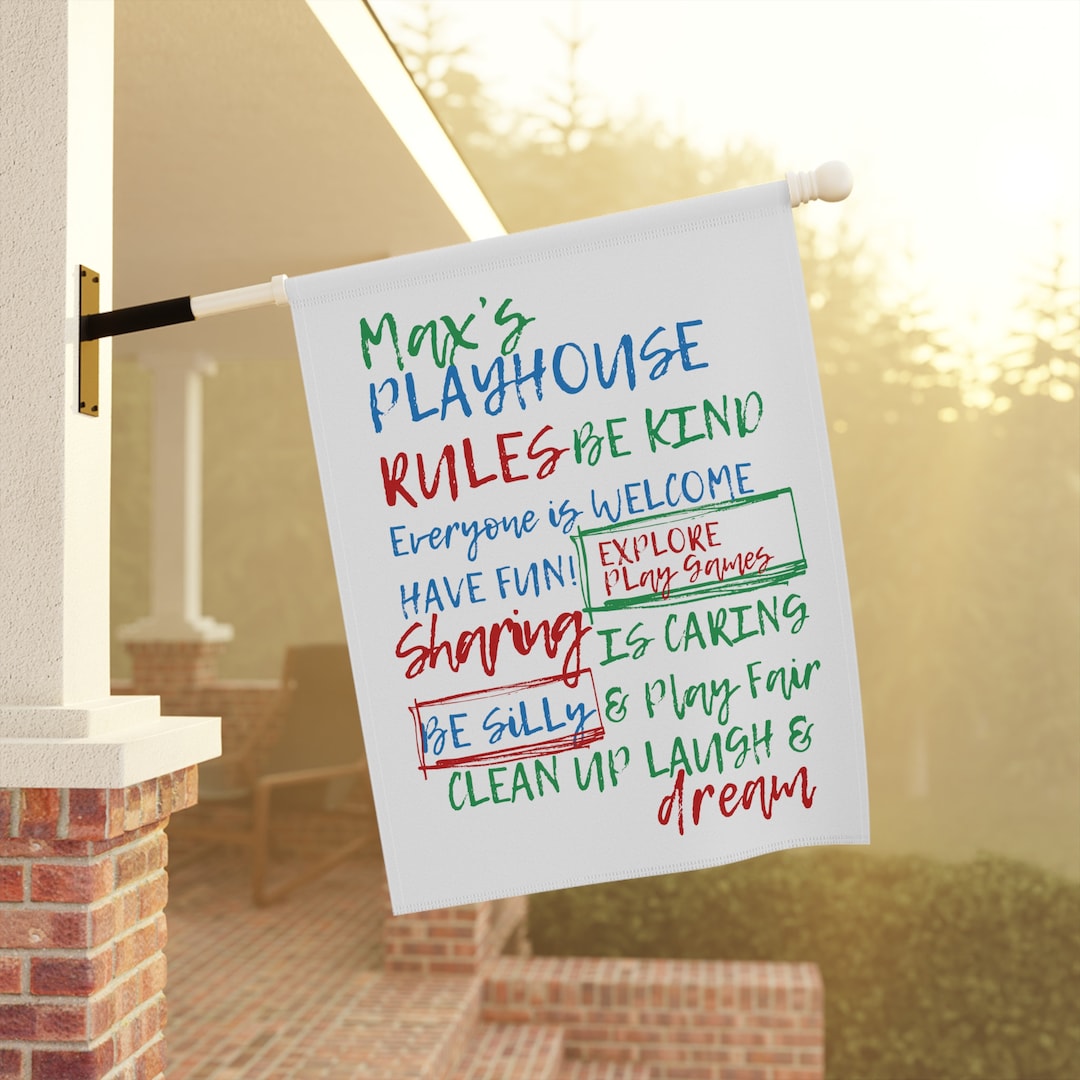 Max's
PLAYHOUSE
RULES BE KIND
Everyone is WELCOME
HAVE FUN! EXPLORE
PLay Games
Sharing IS CARING
BE SiLLy & Play Fair
CLEAN UP LAUGH &
dream